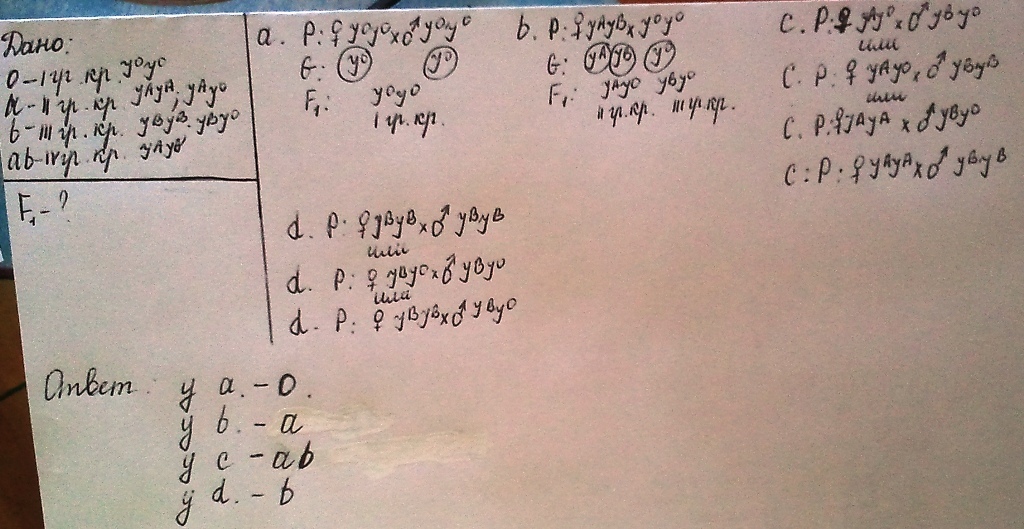 Дано:
0 - I гр. кр. y⁰y⁰
a - II гр. кр. yᴬyᴬ, yᴬy⁰
b - III гр. кр. yᴮyᴮ. yᴮy⁰
ab - IV гр. кр. yᴬyᴮ
F₁ - ?
a. P: ♀ y⁰y⁰ x ♂ y⁰y⁰
G: y⁰ y⁰
F₁: y⁰y⁰
I гр. кр.
b. P: ♀ yᴬyᴮ x y⁰y⁰
G: yᴬ yᴮ y⁰
F₁: yᴬy⁰ yᴮy⁰
II гр. кр. III гр. кр.
c. P: ♀ yᴬy⁰ x ♂ yᴮy⁰
или
C. P: ♀ yᴬy⁰ x ♂ yᴮyᴮ
или
C. P: ♀ yᴬyᴬ x ♂ yᴮy⁰
C: P: ♀ yᴬyᴬ x ♂ yᴮyᴮ
d. P: ♀ yᴮyᴮ x ♂ yᴮyᴮ
или
d. P: ♀ yᴮy⁰ x ♂ yᴮy⁰
или
d. P: ♀ yᴮyᴮ x ♂ yᴮy⁰
Ответ: у a. - 0.
у b. - a
у c - ab
у d. - b